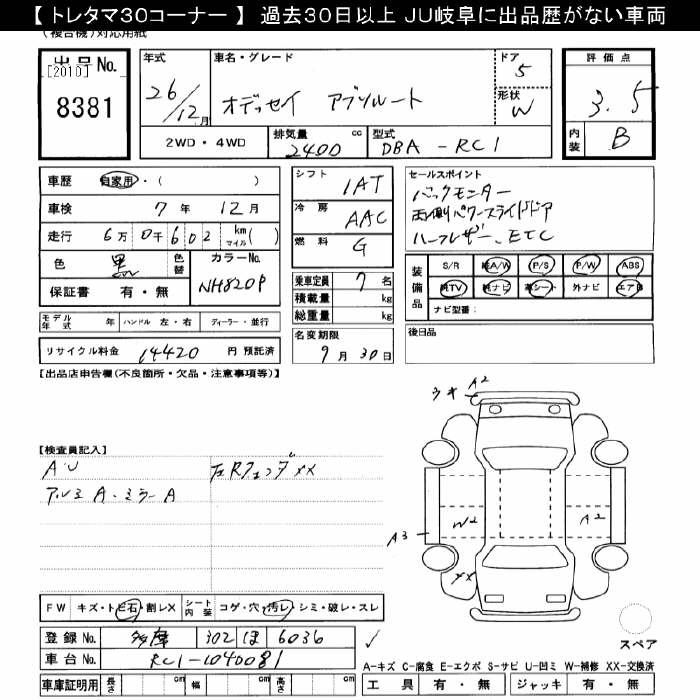 【 トレタマ30コーナー 】 過去30日以上 JU岐阜に出品歴がない車両
(複合機)対応用紙
出品No.
[2010]
8381
年式
26/12月
車名・グレード
オデッセイ アブソルート
ドア
5
形状
W
評価点
3.5
内装
B
2WD・4WD
排気量
2400 cc
型式
DBA-RC1
車歴 自家用・( )
車検 7年 12月
走行 6万0千602 km マイル( )
色 黒 色替
カラーNo.
NH820P
保証書 有・無
シフト
IAT
冷房
AAC
燃料
G
乗車定員 7名
積載量 kg
総重量 kg
セールスポイント
バックモニター
両側パワースライドドア
ハーフレザー、ETC
装備品
S/R 純A/W P/S P/W ABS
純TV 純ナビ 革シート 外ナビ エアB
ナビ型番:
モデル年式 年 ハンドル 左・右 ディーラー・並行
リサイクル料金 14420 円 預託済
名変期限
9月30日
後日品
【出品店申告欄(不良箇所・欠品・注意事項等)】
ウキ A2
【検査員記入】
A・U
左Rフェンダ XX
アルミ A・ミラーA
A3
W2
A2
XX
FW キズ・トビ石・割レX シート内装 コゲ・穴・汚レ・シミ・破レ・スレ
登録No. 多摩 302 ほ 6036
車台No. RC1-1040081
スペア
A-キズ C-腐食 E-エクボ S-サビ U-凹ミ W-補修 XX-交換済
車庫証明用 長さ cm 幅 cm 高さ cm
工具 有・無 ジャッキ 有・無